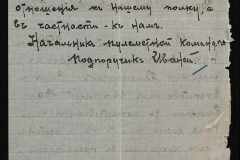 отношенія къ нашему полку, а
въ частности - къ намъ.
Начальникъ пулеметной команды
подпоручикъ